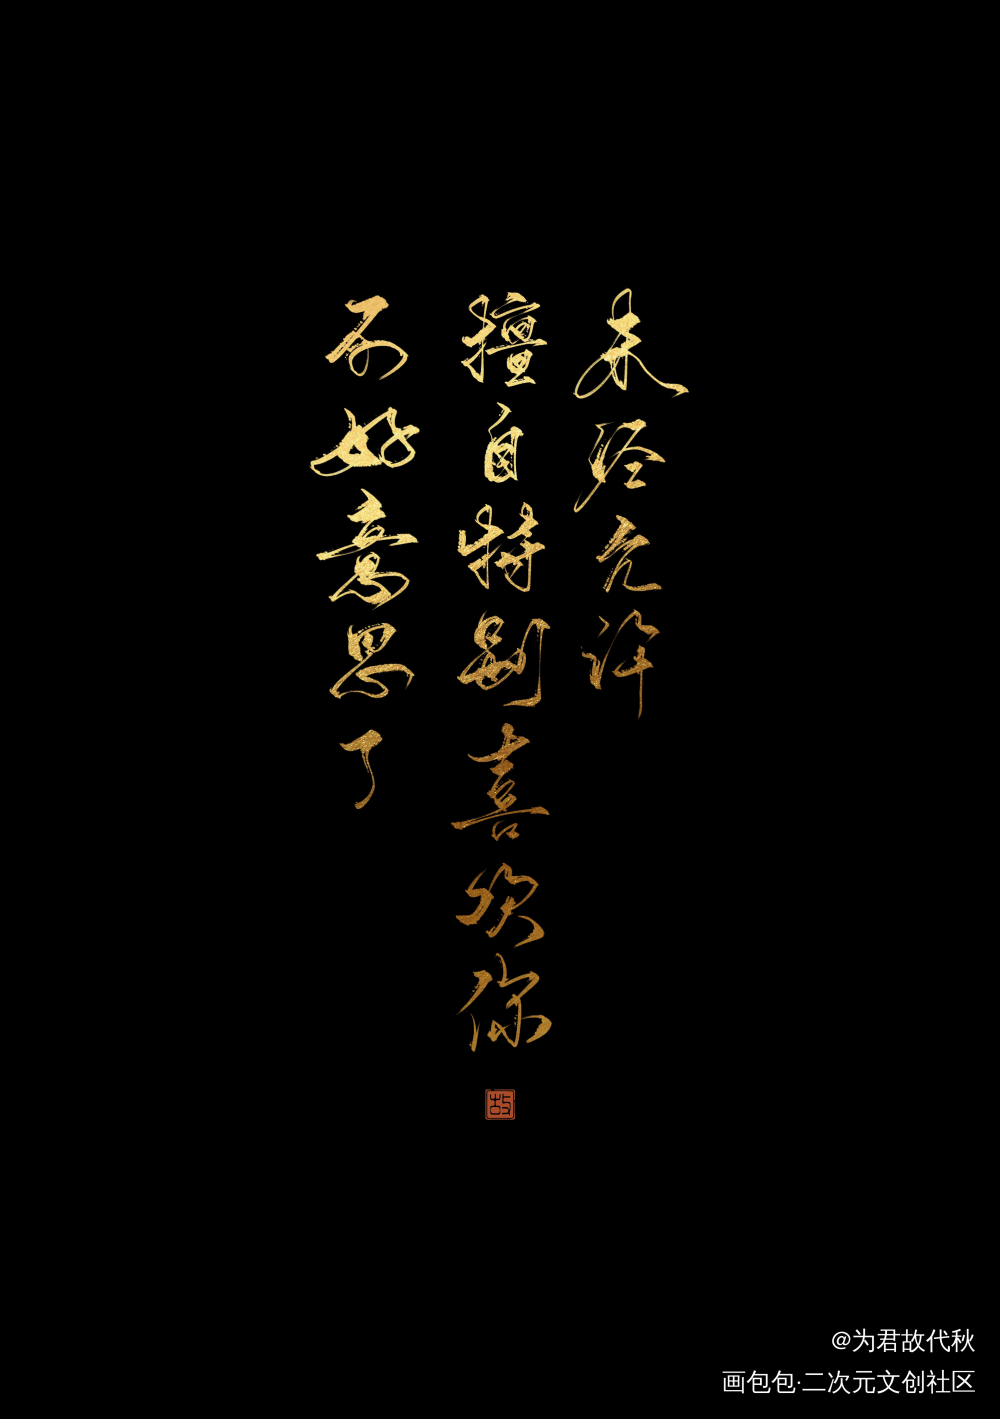 未经允许
擅自特别喜欢你
不好意思了
故
@为君故代秋
画包包·二次元文创社区